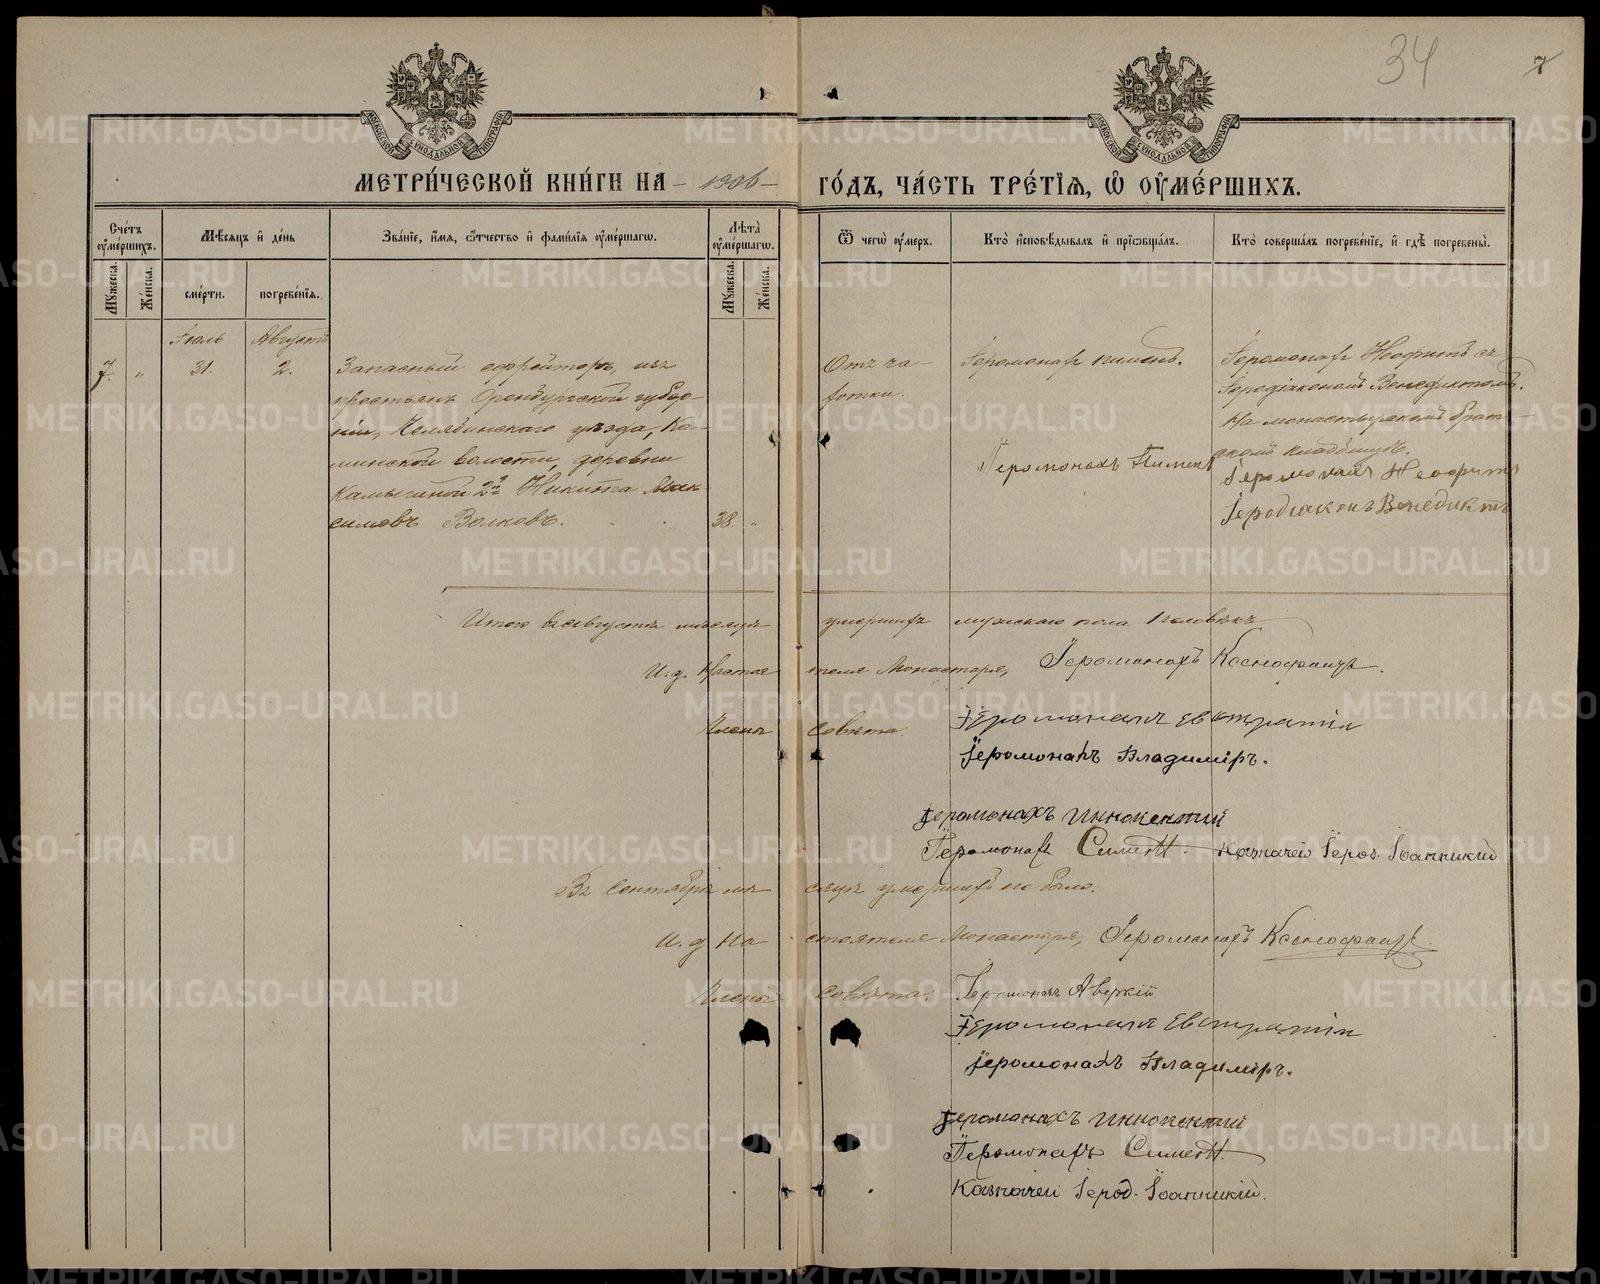 34
7
МОСКОВСКОЙ СѴНОДАЛЬНОЙ ТИПОГРАФІИ
МОСКОВСКОЙ СѴНОДАЛЬНОЙ ТИПОГРАФІИ
МЕТРИ́ЧЕСКОЙ КНИ́ГИ НА 1906 ГО́ДЪ, ЧА́СТЬ ТРЕ́ТІѦ, Ѡ҆ ОУ҆МЕ́РШИХЪ.
Сче́тъ оу҆ме́ршихъ.
Мѣ́сѧцъ и҆ де́нь
Зва́нїе, и҆́мѧ, ѻ҆́тчество и҆ фами́лїѧ оу҆ме́ршагѡ.
Лѣ́та оу҆ме́ршагѡ.
Ѿ чегѡ̀ оу҆́меръ.
Кто̀ и҆сповѣ́дывалъ и҆ прїѡбща́лъ.
Кто̀ соверша́лъ погребе́нїе, и҆ гдѣ̀ погребены̀.
Му́жеска.
Же́нска.
сме́рти.
погребе́нїѧ.
Му́жеска.
Же́нска.
Іюль Августъ
7. " 31. 2.
Запасный ефрейторъ, изъ
крестьянъ Оренбургской губер-
ніи, Челябинскаго уѣзда, Ка-
минской волости, деревни
Камышной 2й Никита Мак-
симовъ Волковъ. 38 "
Отъ ча-
хотки.
Іеромонахъ Пименъ.
Іеромонахъ Пименъ
Іеромонахъ Неофитъ съ
Іеродіакономъ Венедиктомъ.
На монастырскомъ брат-
скомъ кладбищѣ.
Іеромонахъ Неофитъ
Іеродіаконъ Венедиктъ
Итого въ августѣ мѣсяцѣ умершихъ мужскаго пола 1 человѣкъ
И. д. Настоятеля Монастыря, Іеромонахъ Ксенофонтъ.
Члены Совѣта: Іеромонахъ Евстратій
Іеромонахъ Владиміръ.
Іеромонахъ Иннокентий
Іеромонахъ Симеонъ. Казначей Іерод. Іоанникий
Въ Сентябрѣ мѣсяцѣ умершихъ не было.
И. д. Настоятеля Монастыря, Іеромонахъ Ксенофонтъ.
Члены Совѣта: Іеромонахъ Аверкій
Іеромонахъ Евстратій
Іеромонахъ Владиміръ.
Іеромонахъ Иннокентий
Іеромонахъ Симеонъ.
Казначей Іерод. Іоанникий.
METRIKI.GASO-URAL.RU